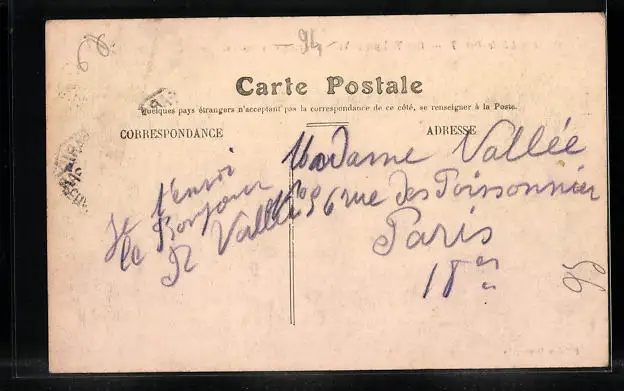 94
Carte Postale
Quelques pays étrangers n'acceptant pas la correspondance de ce côté, se renseigner à la Poste.
CORRESPONDANCE
ADRESSE
Je t'envoi
le Bonjour
R Vallée
Madame Vallée
96 rue des Poissonnier
Paris
18
95